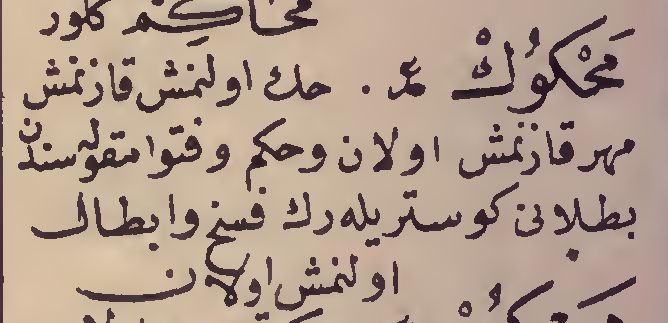 محاكم كلور
مَحْكُوكْ عر. حك اولنمش قازنمش
مهر قازنمش اولان وحكم وفتوا مقوله سندن
بطلانى كوستريله رك فسخ وابطال
اولنمش اولان